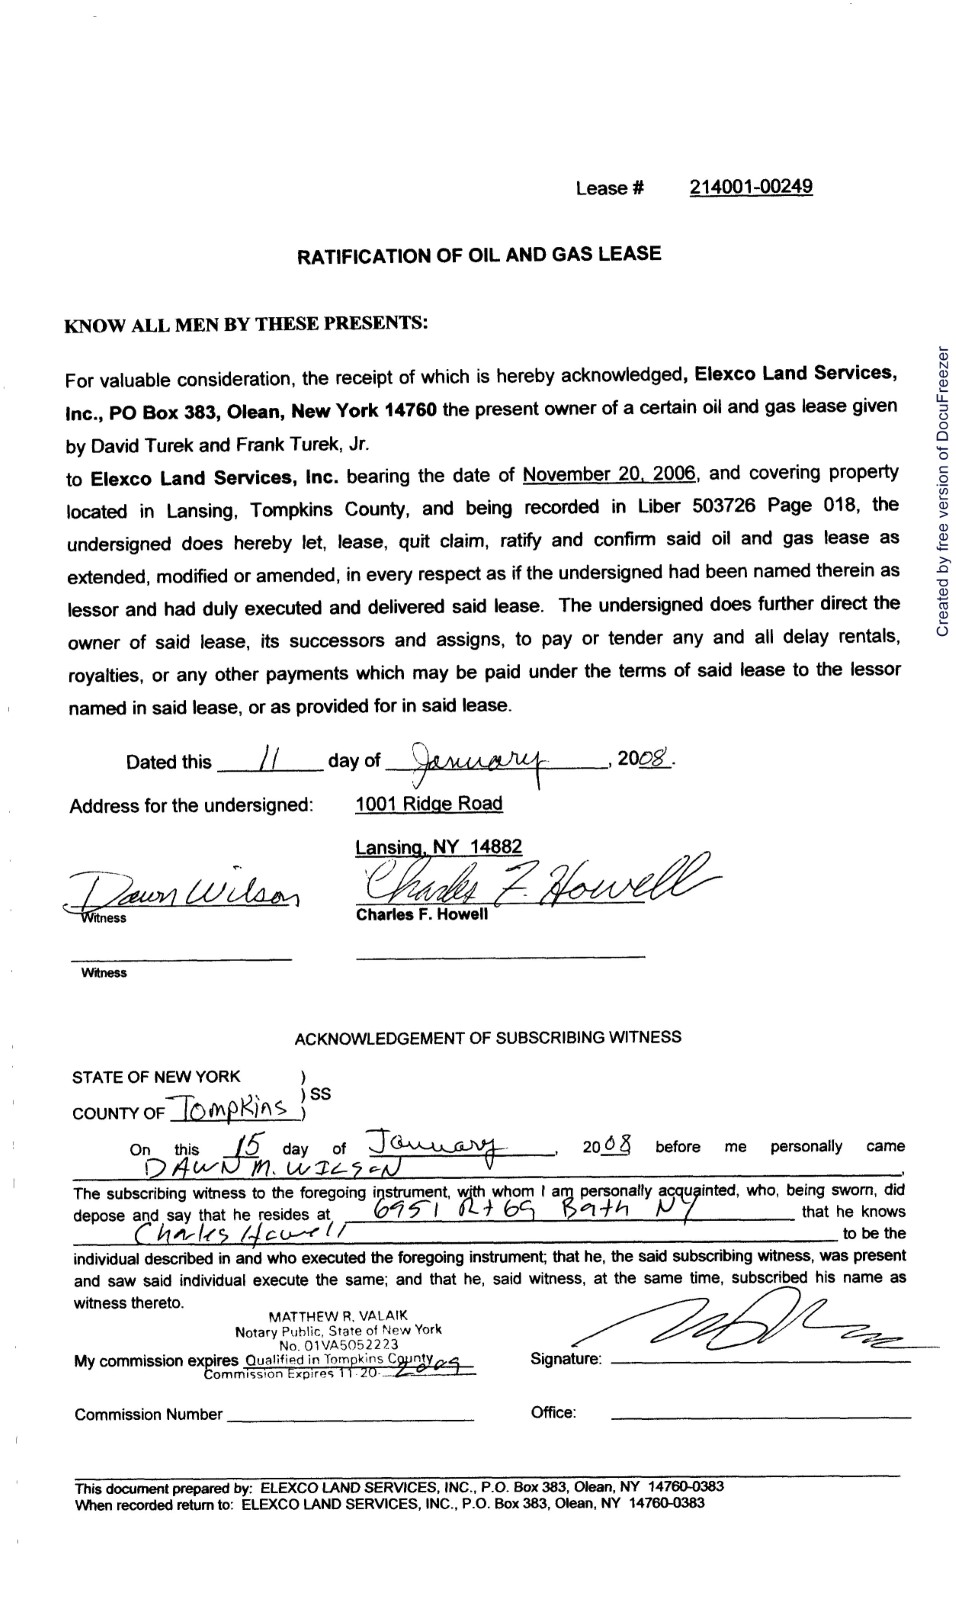 Lease # 214001-00249
RATIFICATION OF OIL AND GAS LEASE
KNOW ALL MEN BY THESE PRESENTS:
For valuable consideration, the receipt of which is hereby acknowledged, Elexco Land Services,
Inc., PO Box 383, Olean, New York 14760 the present owner of a certain oil and gas lease given
by David Turek and Frank Turek, Jr.
to Elexco Land Services, Inc. bearing the date of November 20, 2006, and covering property
located in Lansing, Tompkins County, and being recorded in Liber 503726 Page 018, the
undersigned does hereby let, lease, quit claim, ratify and confirm said oil and gas lease as
extended, modified or amended, in every respect as if the undersigned had been named therein as
lessor and had duly executed and delivered said lease. The undersigned does further direct the
owner of said lease, its successors and assigns, to pay or tender any and all delay rentals,
royalties, or any other payments which may be paid under the terms of said lease to the lessor
named in said lease, or as provided for in said lease.
Dated this 11 day of January, 2008.
Address for the undersigned: 1001 Ridge Road
Lansing, NY 14882
Dawn Wilson Charles F. Howell
Witness Charles F. Howell
Witness
ACKNOWLEDGEMENT OF SUBSCRIBING WITNESS
STATE OF NEW YORK )
) SS
COUNTY OF Tompkins )
On this 15 day of January, 2008 before me personally came
DAWN M. WILSON,
The subscribing witness to the foregoing instrument, with whom I am personally acquainted, who, being sworn, did
depose and say that he resides at 6951 Rt 69 Bath NY that he knows
Charles Howell to be the
individual described in and who executed the foregoing instrument; that he, the said subscribing witness, was present
and saw said individual execute the same; and that he, said witness, at the same time, subscribed his name as
witness thereto.
MATTHEW R. VALAIK
Notary Public, State of New York
No. 01VA5052223
My commission expires Qualified in Tompkins County
Commission Expires 11-20-2009
Signature:
Commission Number
Office:
This document prepared by: ELEXCO LAND SERVICES, INC., P.O. Box 383, Olean, NY 14760-0383
When recorded return to: ELEXCO LAND SERVICES, INC., P.O. Box 383, Olean, NY 14760-0383
Created by free version of DocuFreezer